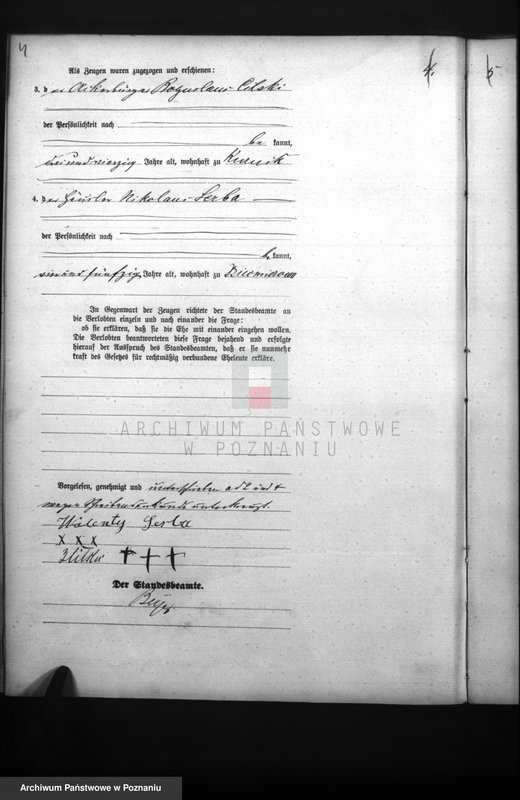 4
4.
5.
Als Zeugen waren zugezogen und erschienen:
3. der Ackerbürger Boguslaus Celski
der Persönlichkeit nach
be kannt,
drei und vierzig Jahre alt, wohnhaft zu Kurnik
4. der Häusler Nikolaus Serba
der Persönlichkeit nach
be kannt,
vier und fünfzig Jahre alt, wohnhaft zu
In Gegenwart der Zeugen richtete der Standesbeamte an
die Verlobten einzeln und nach einander die Frage:
ob sie erklären, daß sie die Ehe mit einander eingehen wollen.
Die Verlobten beantworteten diese Frage bejahend und erfolgte
hierauf der Ausspruch des Standesbeamten, daß er sie nunmehr
kraft des Gesetzes für rechtmäßig verbundene Eheleute erkläre.
ARCHIWUM PAŃSTWOWE
W POZNANIU
Vorgelesen, genehmigt und unterschrieben ad 2 und 4
wegen Schreibensunkunde unterkreuzt.
Walenty Serba
x x x
+ + +
Der Standesbeamte.
Archiwum Państwowe w Poznaniu